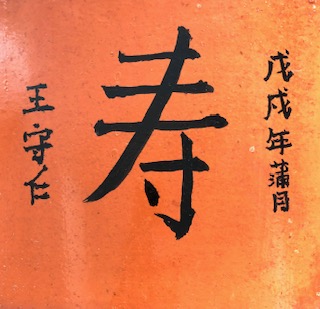 戊戌年蒲月
寿
王守仁